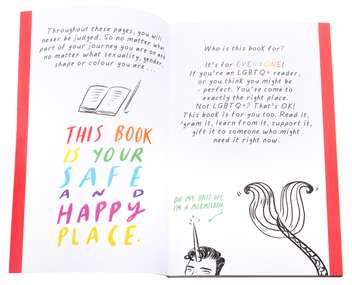 Throughout these pages, you will
never be judged. So no matter what
part of your journey you are on and
no matter what sexuality, gender,
shape or colour you are . . .
THIS BOOK
IS YOUR
SAFE
AND
HAPPY
PLACE.
Who is this book for?
It's for EVERYONE!
If you're an LGBTQ+ reader,
or you think you might be
– perfect. You've come to
exactly the right place.
Not LGBTQ+? That's OK!
This book is for you too. Read it,
'gram it, learn from it, support it,
gift it to someone who might
need it right now.
ON MY DAYS OFF,
I'M A MERMICORN